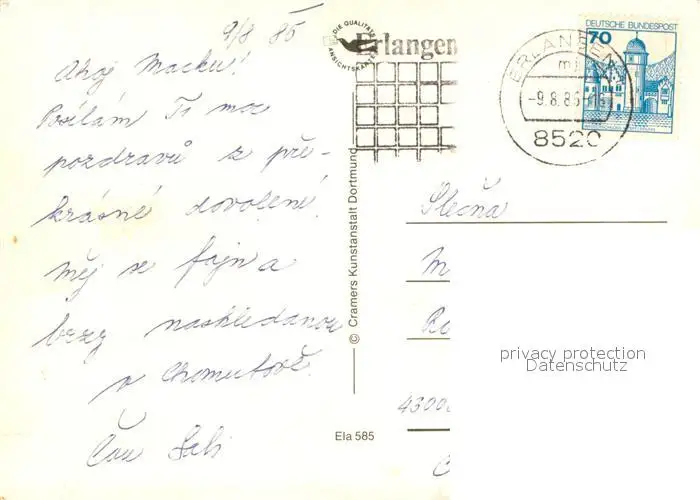 9/8 85
Ahoj Macku!
Posílám Ti moc
pozdravů z pře-
krásné dovolené.
Měj se fajn a
brzy nashledanou
v Chomutově.
Čau
DIE QUALITÄTS
ANSICHTSKARTE
Erlangen
ERLANGEN
-9.8.85
8520
DEUTSCHE BUNDESPOST
70
© Cramers Kunstanstalt Dortmund
Slečna
M
4300
privacy protection
Datenschutz
Ela 585